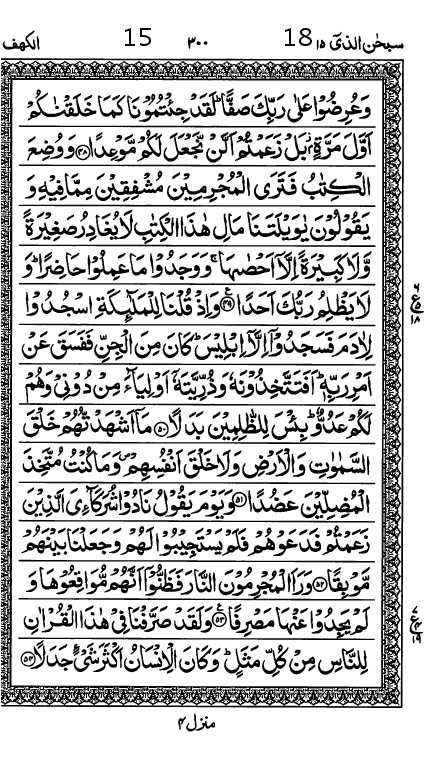 سبحٰن الذیٓ ۱۵ 18 ۳۰۰ 15 الکهف
وَعُرِضُوْا عَلٰى رَبِّكَ صَفًّا ؕ لَقَدْ جِئْتُمُوْنَا كَمَا خَلَقْنٰكُمْ
اَوَّلَ مَرَّةٍۭ ؗ بَلْ زَعَمْتُمْ اَلَّنْ نَّجْعَلَ لَكُمْ مَّوْعِدًا ﴿۴۸﴾ وَوُضِعَ
الْكِتٰبُ فَتَرَى الْمُجْرِمِيْنَ مُشْفِقِيْنَ مِمَّا فِيْهِ وَ
يَقُوْلُوْنَ يٰوَيْلَتَنَا مَالِ هٰذَا الْكِتٰبِ لَا يُغَادِرُ صَغِيْرَةً
وَّلَا كَبِيْرَةً اِلَّاۤ اَحْصٰىهَا ۚ وَوَجَدُوْا مَا عَمِلُوْا حَاضِرًا ؕ وَ
لَا يَظْلِمُ رَبُّكَ اَحَدًا ﴿۴۹﴾ وَاِذْ قُلْنَا لِلْمَلٰٓئِكَةِ اسْجُدُوْا
لِاٰدَمَ فَسَجَدُوْۤا اِلَّاۤ اِبْلِيْسَ ؕ كَانَ مِنَ الْجِنِّ فَفَسَقَ عَنْ
اَمْرِ رَبِّهٖ ؕ اَفَتَتَّخِذُوْنَهٗ وَذُرِّيَّتَهٗۤ اَوْلِيَآءَ مِنْ دُوْنِيْ وَهُمْ
لَكُمْ عَدُوٌّ ؕ بِئْسَ لِلظّٰلِمِيْنَ بَدَلًا ﴿۵۰﴾ مَاۤ اَشْهَدْتُّهُمْ خَلْقَ
السَّمٰوٰتِ وَالْاَرْضِ وَلَا خَلْقَ اَنْفُسِهِمْ ۪ وَمَا كُنْتُ مُتَّخِذَ
الْمُضِلِّيْنَ عَضُدًا ﴿۵۱﴾ وَيَوْمَ يَقُوْلُ نَادُوْا شُرَكَآءِىَ الَّذِيْنَ
زَعَمْتُمْ فَدَعَوْهُمْ فَلَمْ يَسْتَجِيْبُوْا لَهُمْ وَجَعَلْنَا بَيْنَهُمْ
مَّوْبِقًا ﴿۵۲﴾ وَرَاَ الْمُجْرِمُوْنَ النَّارَ فَظَنُّوْۤا اَنَّهُمْ مُّوَاقِعُوْهَا وَ
لَمْ يَجِدُوْا عَنْهَا مَصْرِفًا ﴿۵۳﴾ وَلَقَدْ صَرَّفْنَا فِيْ هٰذَا الْقُرْاٰنِ
لِلنَّاسِ مِنْ كُلِّ مَثَلٍ ؕ وَكَانَ الْاِنْسَانُ اَكْثَرَ شَيْءٍ جَدَلًا ﴿۵۴﴾
منزل ۴